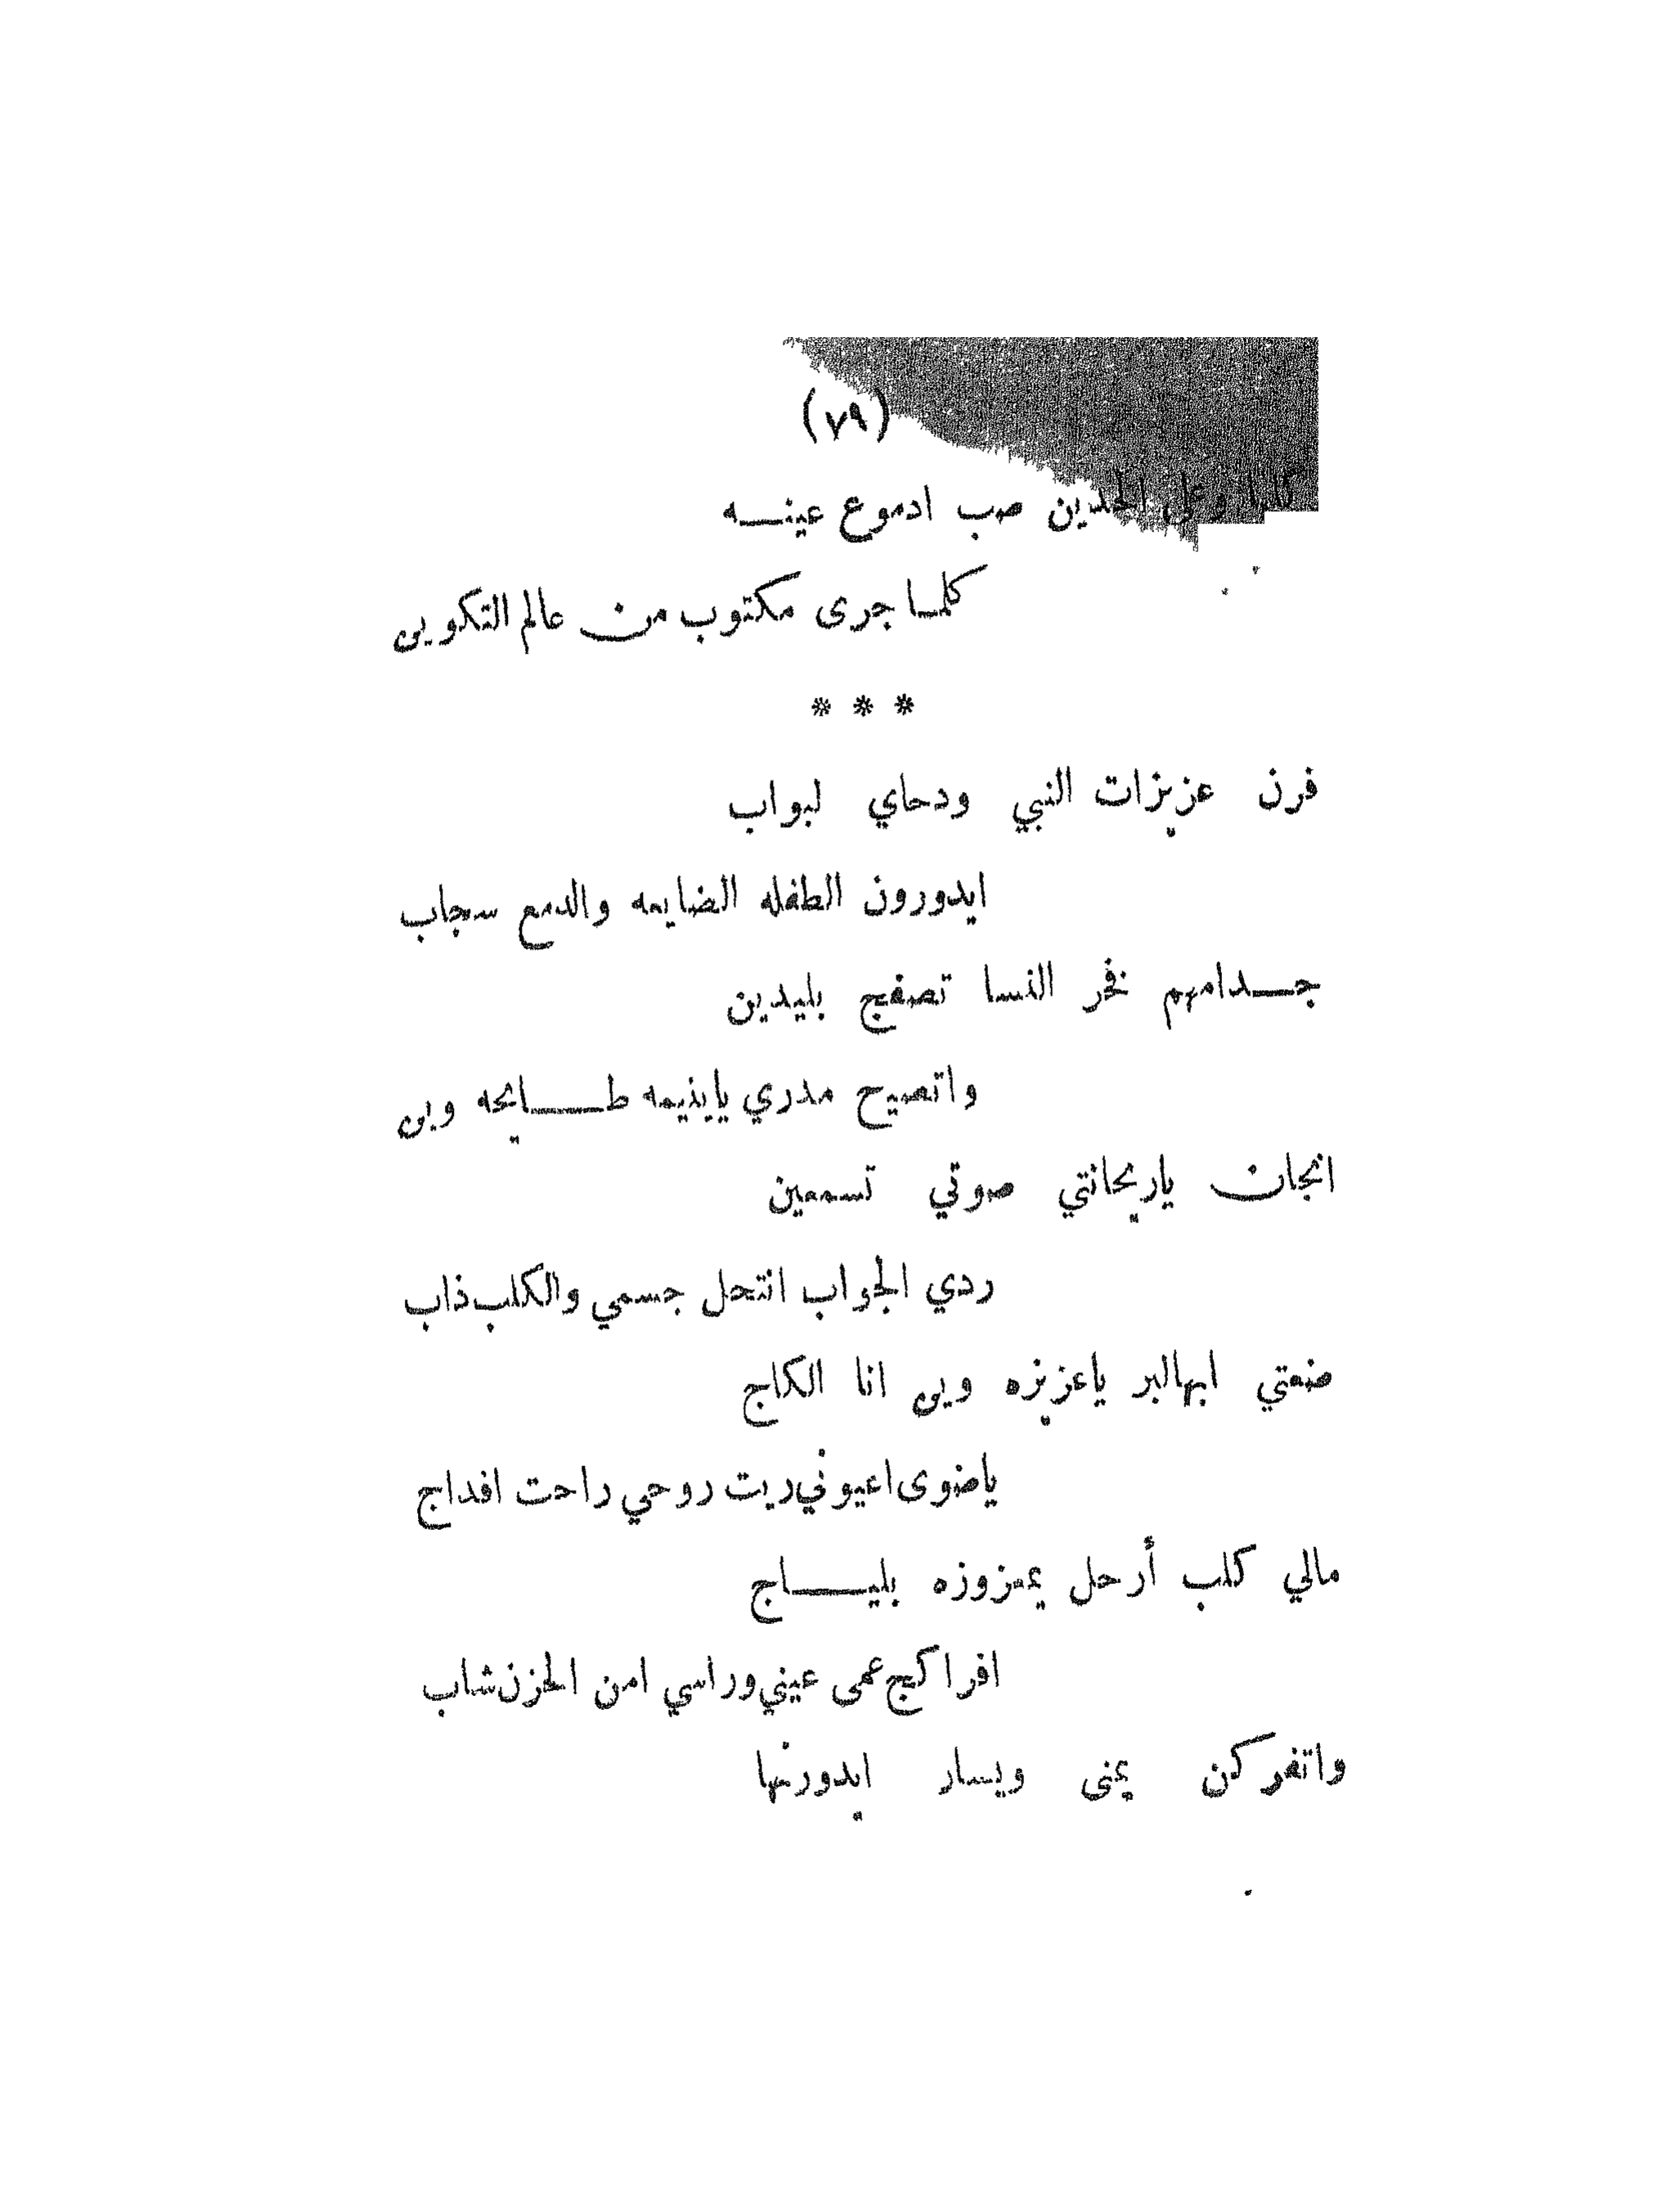 (٧٩)
وعلى الخدين صب ادموع عينـــه
كلمـا جرى مكتوب من عالم التكوين
* * *
فرن عزيزات النبي ودحاي لبواب
ايدورون الطفله الضايعه والدمع سجاب
جـــدامهم فخر النسا تصفج بليدين
واتصيح مدري يايذيمه طـــايحه وين
انجان ياريحانتي صوتي تسمعين
ردي الجواب انتحل جسمي والكلب ذاب
ضعتي ابهالبر ياعزيزه وين انا الكاج
ياضوى اعيوني ريت روحي راحت افداج
مالي كلب أرحل يمعزوزه بليـــاج
افراكج عمى عيني وراسي امن الحزن شاب
واتفركن يمنى ويسار ايدورنها